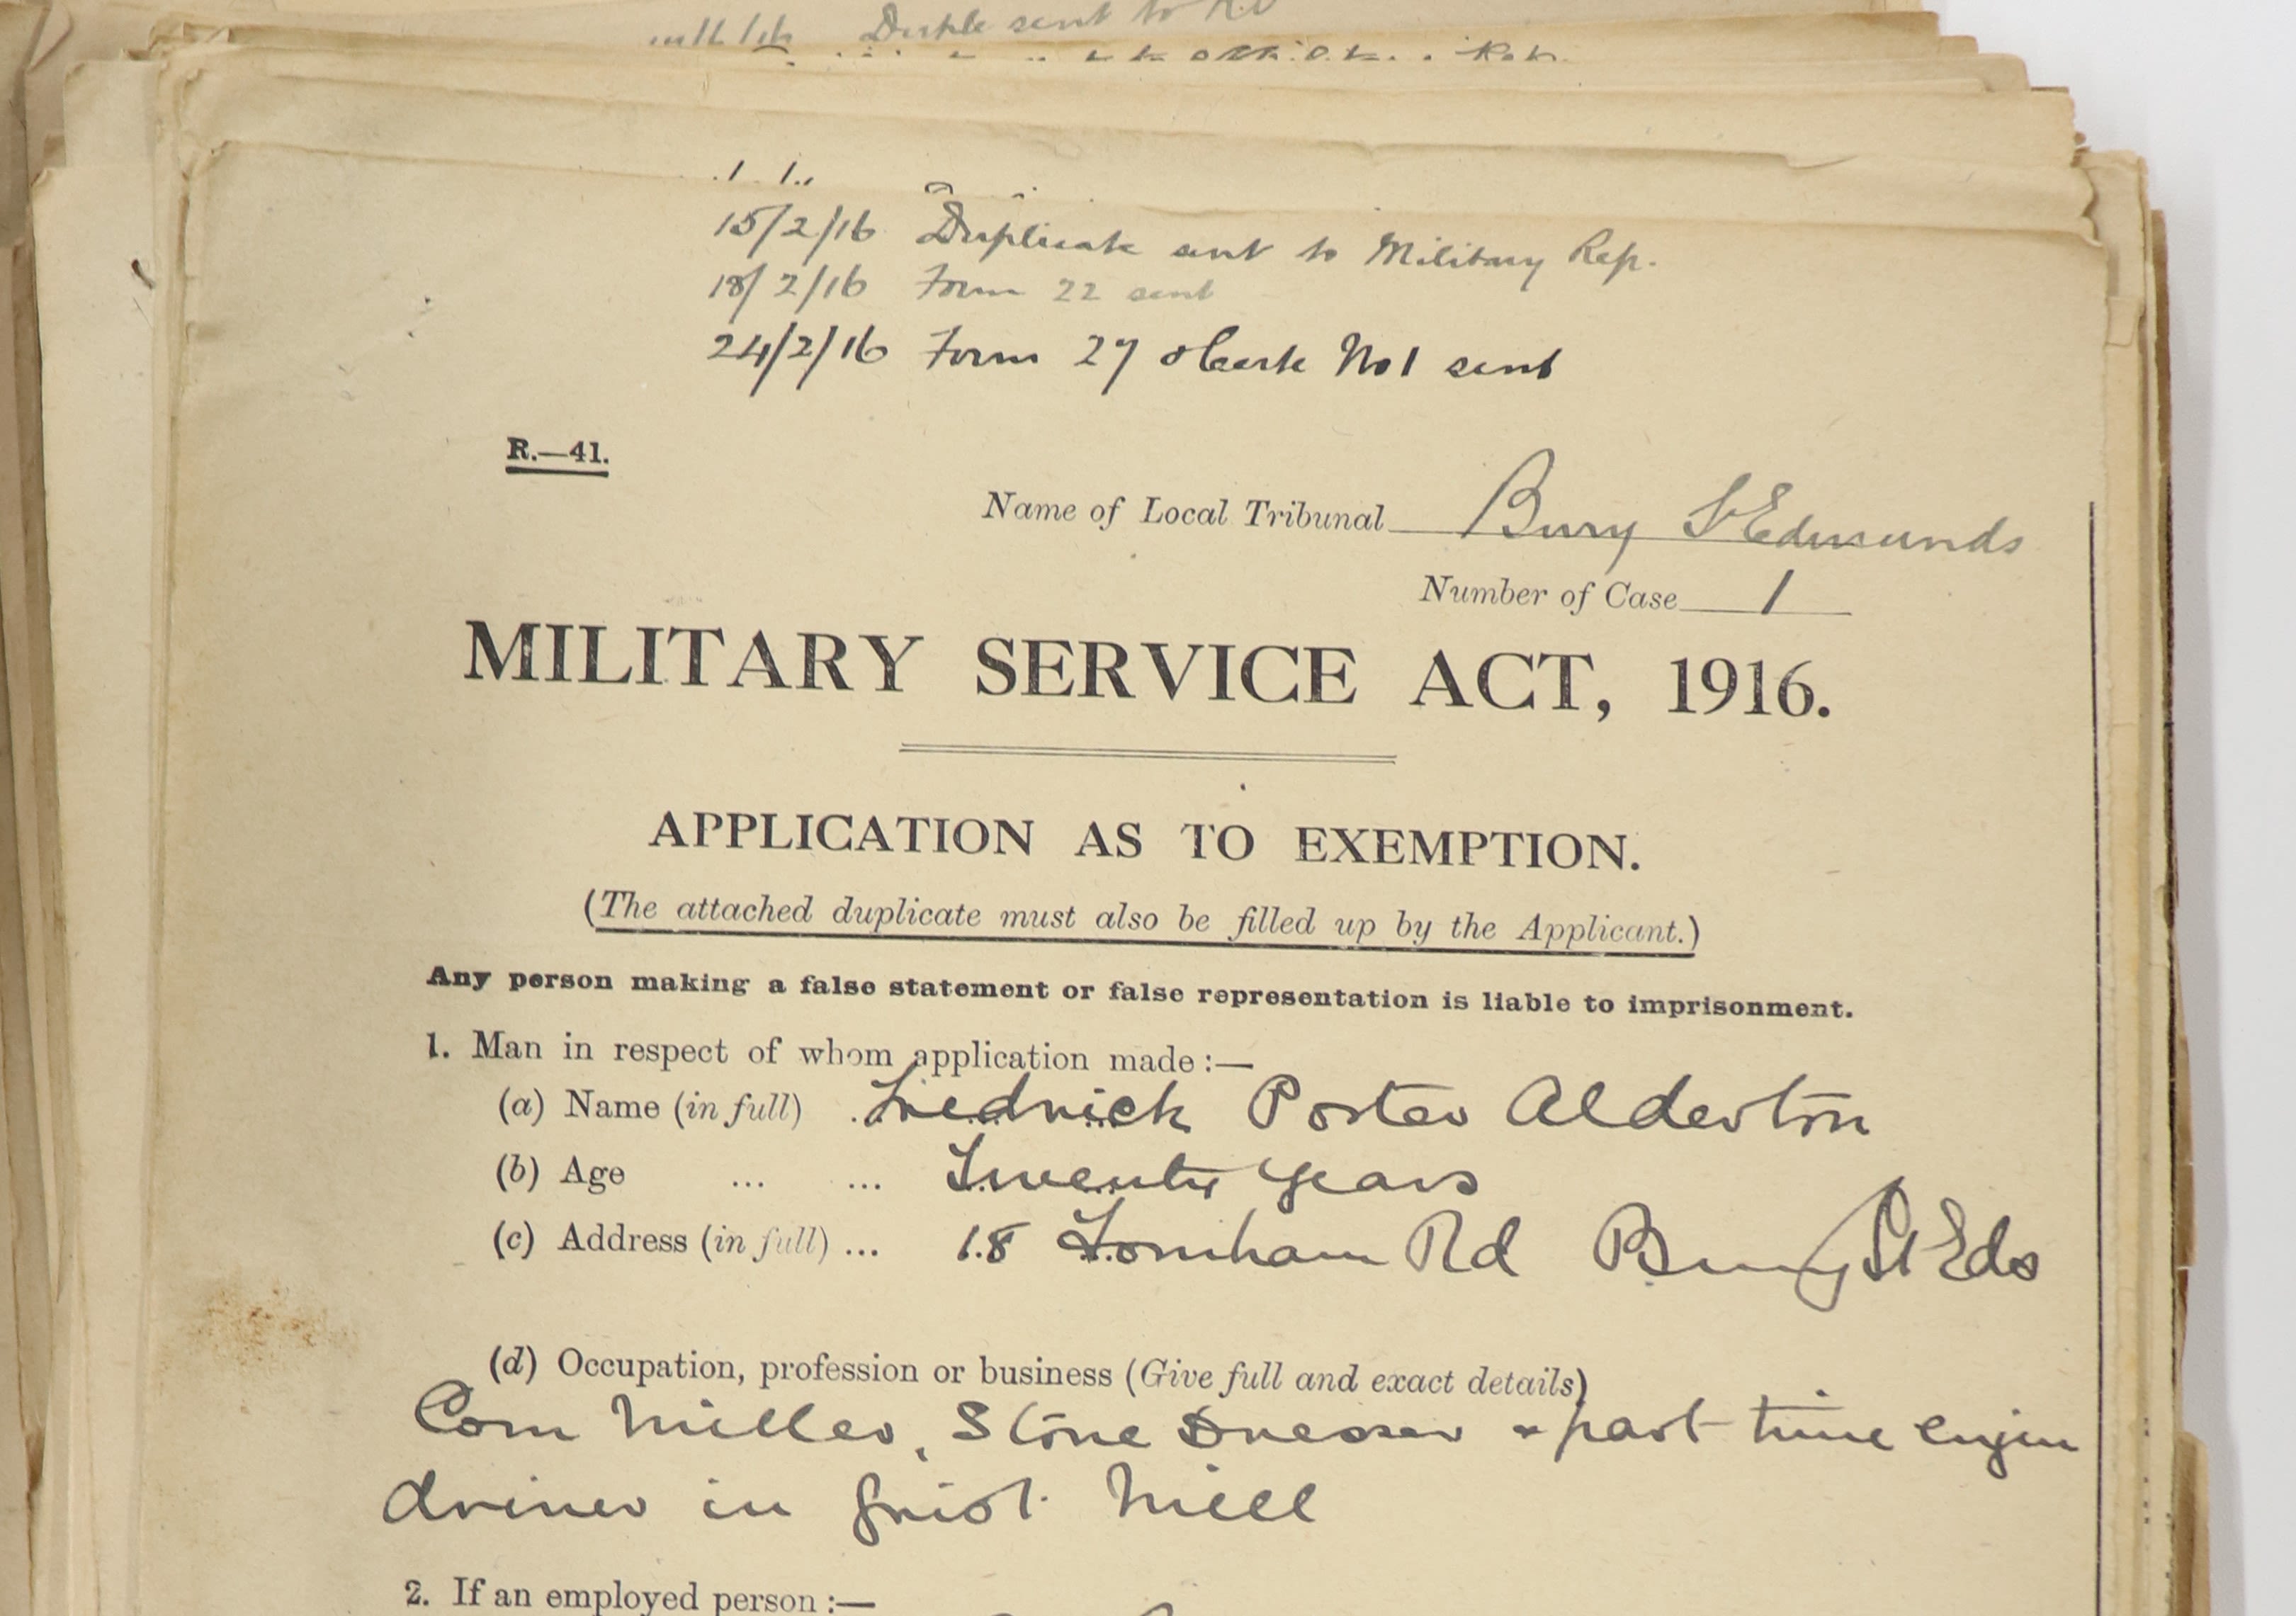 Duple sent to
15/2/16 Duplicate sent to Military Rep.
18/2/16 Form 22 sent
24/2/16 Form 27 & Certe No 1 sent
R.—41.
Name of Local Tribunal Bury St Edmunds
Number of Case 1
MILITARY SERVICE ACT, 1916.
APPLICATION AS TO EXEMPTION.
(The attached duplicate must also be filled up by the Applicant.)
Any person making a false statement or false representation is liable to imprisonment.
1. Man in respect of whom application made :—
(a) Name (in full) Fredrick Porter Alderton
(b) Age ... ... Twenty years
(c) Address (in full) ... 18 Fornham Rd Bury St Eds
(d) Occupation, profession or business (Give full and exact details)
Corn Miller, Stone Dresser & part time engin
driver in Grist Mill
2. If an employed person :—